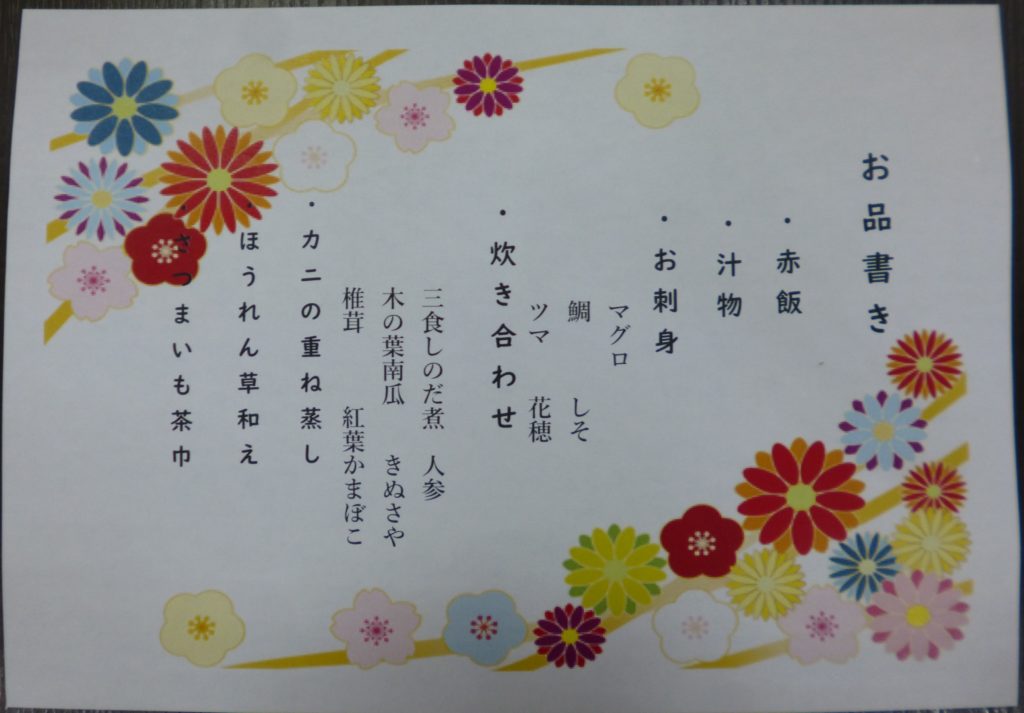 お品書き
・赤飯
・汁物
・お刺身
マグロ
鯛 しそ
ツマ 花穂
・炊き合わせ
三食しのだ煮 人参
木の葉南瓜 きぬさや
椎茸 紅葉かまぼこ
・カニの重ね蒸し
・ほうれん草和え
・さつまいも茶巾